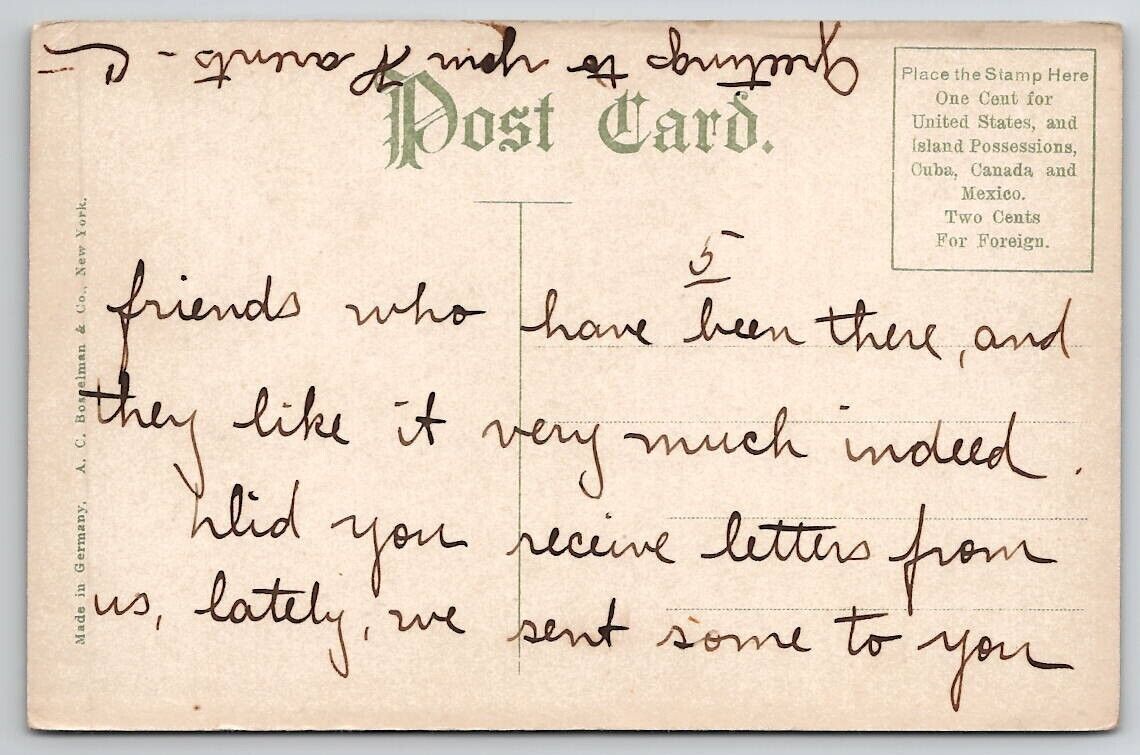 Greetings to your Parents -
Post Card.
Place the Stamp Here
One Cent for
United States, and
Island Possessions,
Cuba, Canada and
Mexico.
Two Cents
For Foreign.
5
friends who have been there, and
they like it very much indeed.
Did you receive letters from
us, lately, we sent some to you
Made in Germany. A. C. Bosselman & Co., New York.